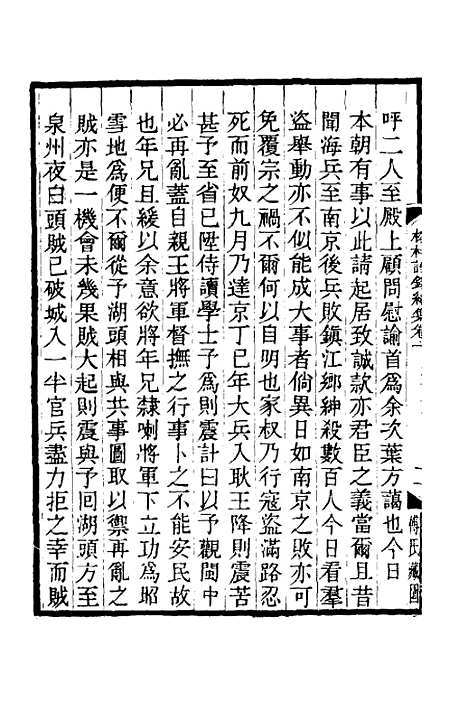 呼二人至殿上顧問慰諭首爲余次葉方藹也今日
本朝有事以此請起居致誠款亦君臣之義當爾且昔
聞海兵至南京後兵敗鎮江鄉紳殺數百人今日看羣
盜舉動亦不似能成大事者倘異日如南京之敗亦可
免覆宗之禍不爾何以自明也家權乃行寇盜滿路忍
死而前奴九月乃達京丁巳年大兵入耿王降則震苦
甚予至省已陞侍讀學士子爲則震計曰以予觀閩中
必再亂蓋自親王將軍督撫之行事卜之不能安民故
也年兄且緩以余意欲將年兄隸喇將軍下立功爲昭
雪地爲便不爾從予湖頭相與共事圖取以禦再亂之
賊亦是一機會未幾果賊大起則震與予回湖頭方至
泉州夜白頭賊已破城入一半官兵盡力拒之幸而賊
榕村語錄續集卷
傅氏藏園